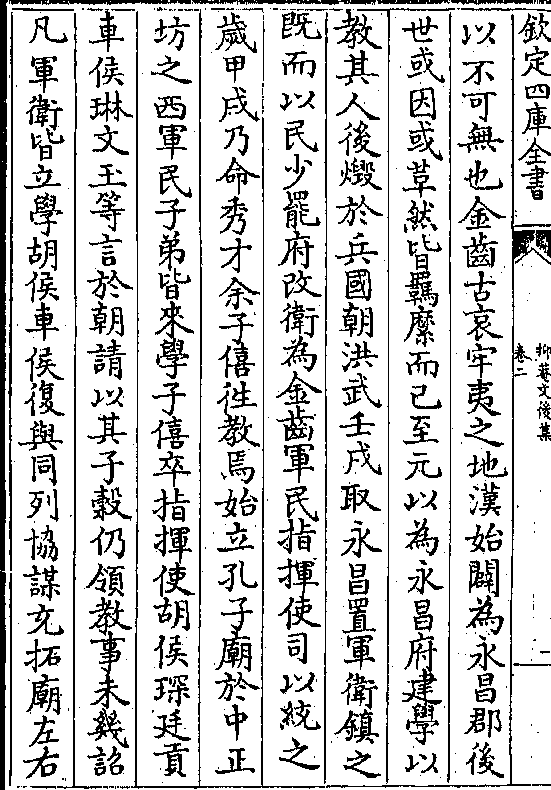 欽定四庫全書
抑菴文後集
卷二
以不可無也金齒古哀牢夷之地漢始闢為永昌郡後
世或因或革然皆羈縻而已至元以為永昌府建學以
教其人後燬於兵國朝洪武壬戌取永昌置軍衛鎮之
既而以民少罷府改衛為金齒軍民指揮使司以統之
歲甲戌乃命秀才余子僖徃教焉始立孔子廟於中正
坊之西軍民子弟皆來學子僖卒指揮使胡侯琛廷貢
車侯琳文玉等言於朝請以其子穀仍領教事未幾詔
凡軍衛皆立學胡侯車侯復與同列協謀充拓廟左右